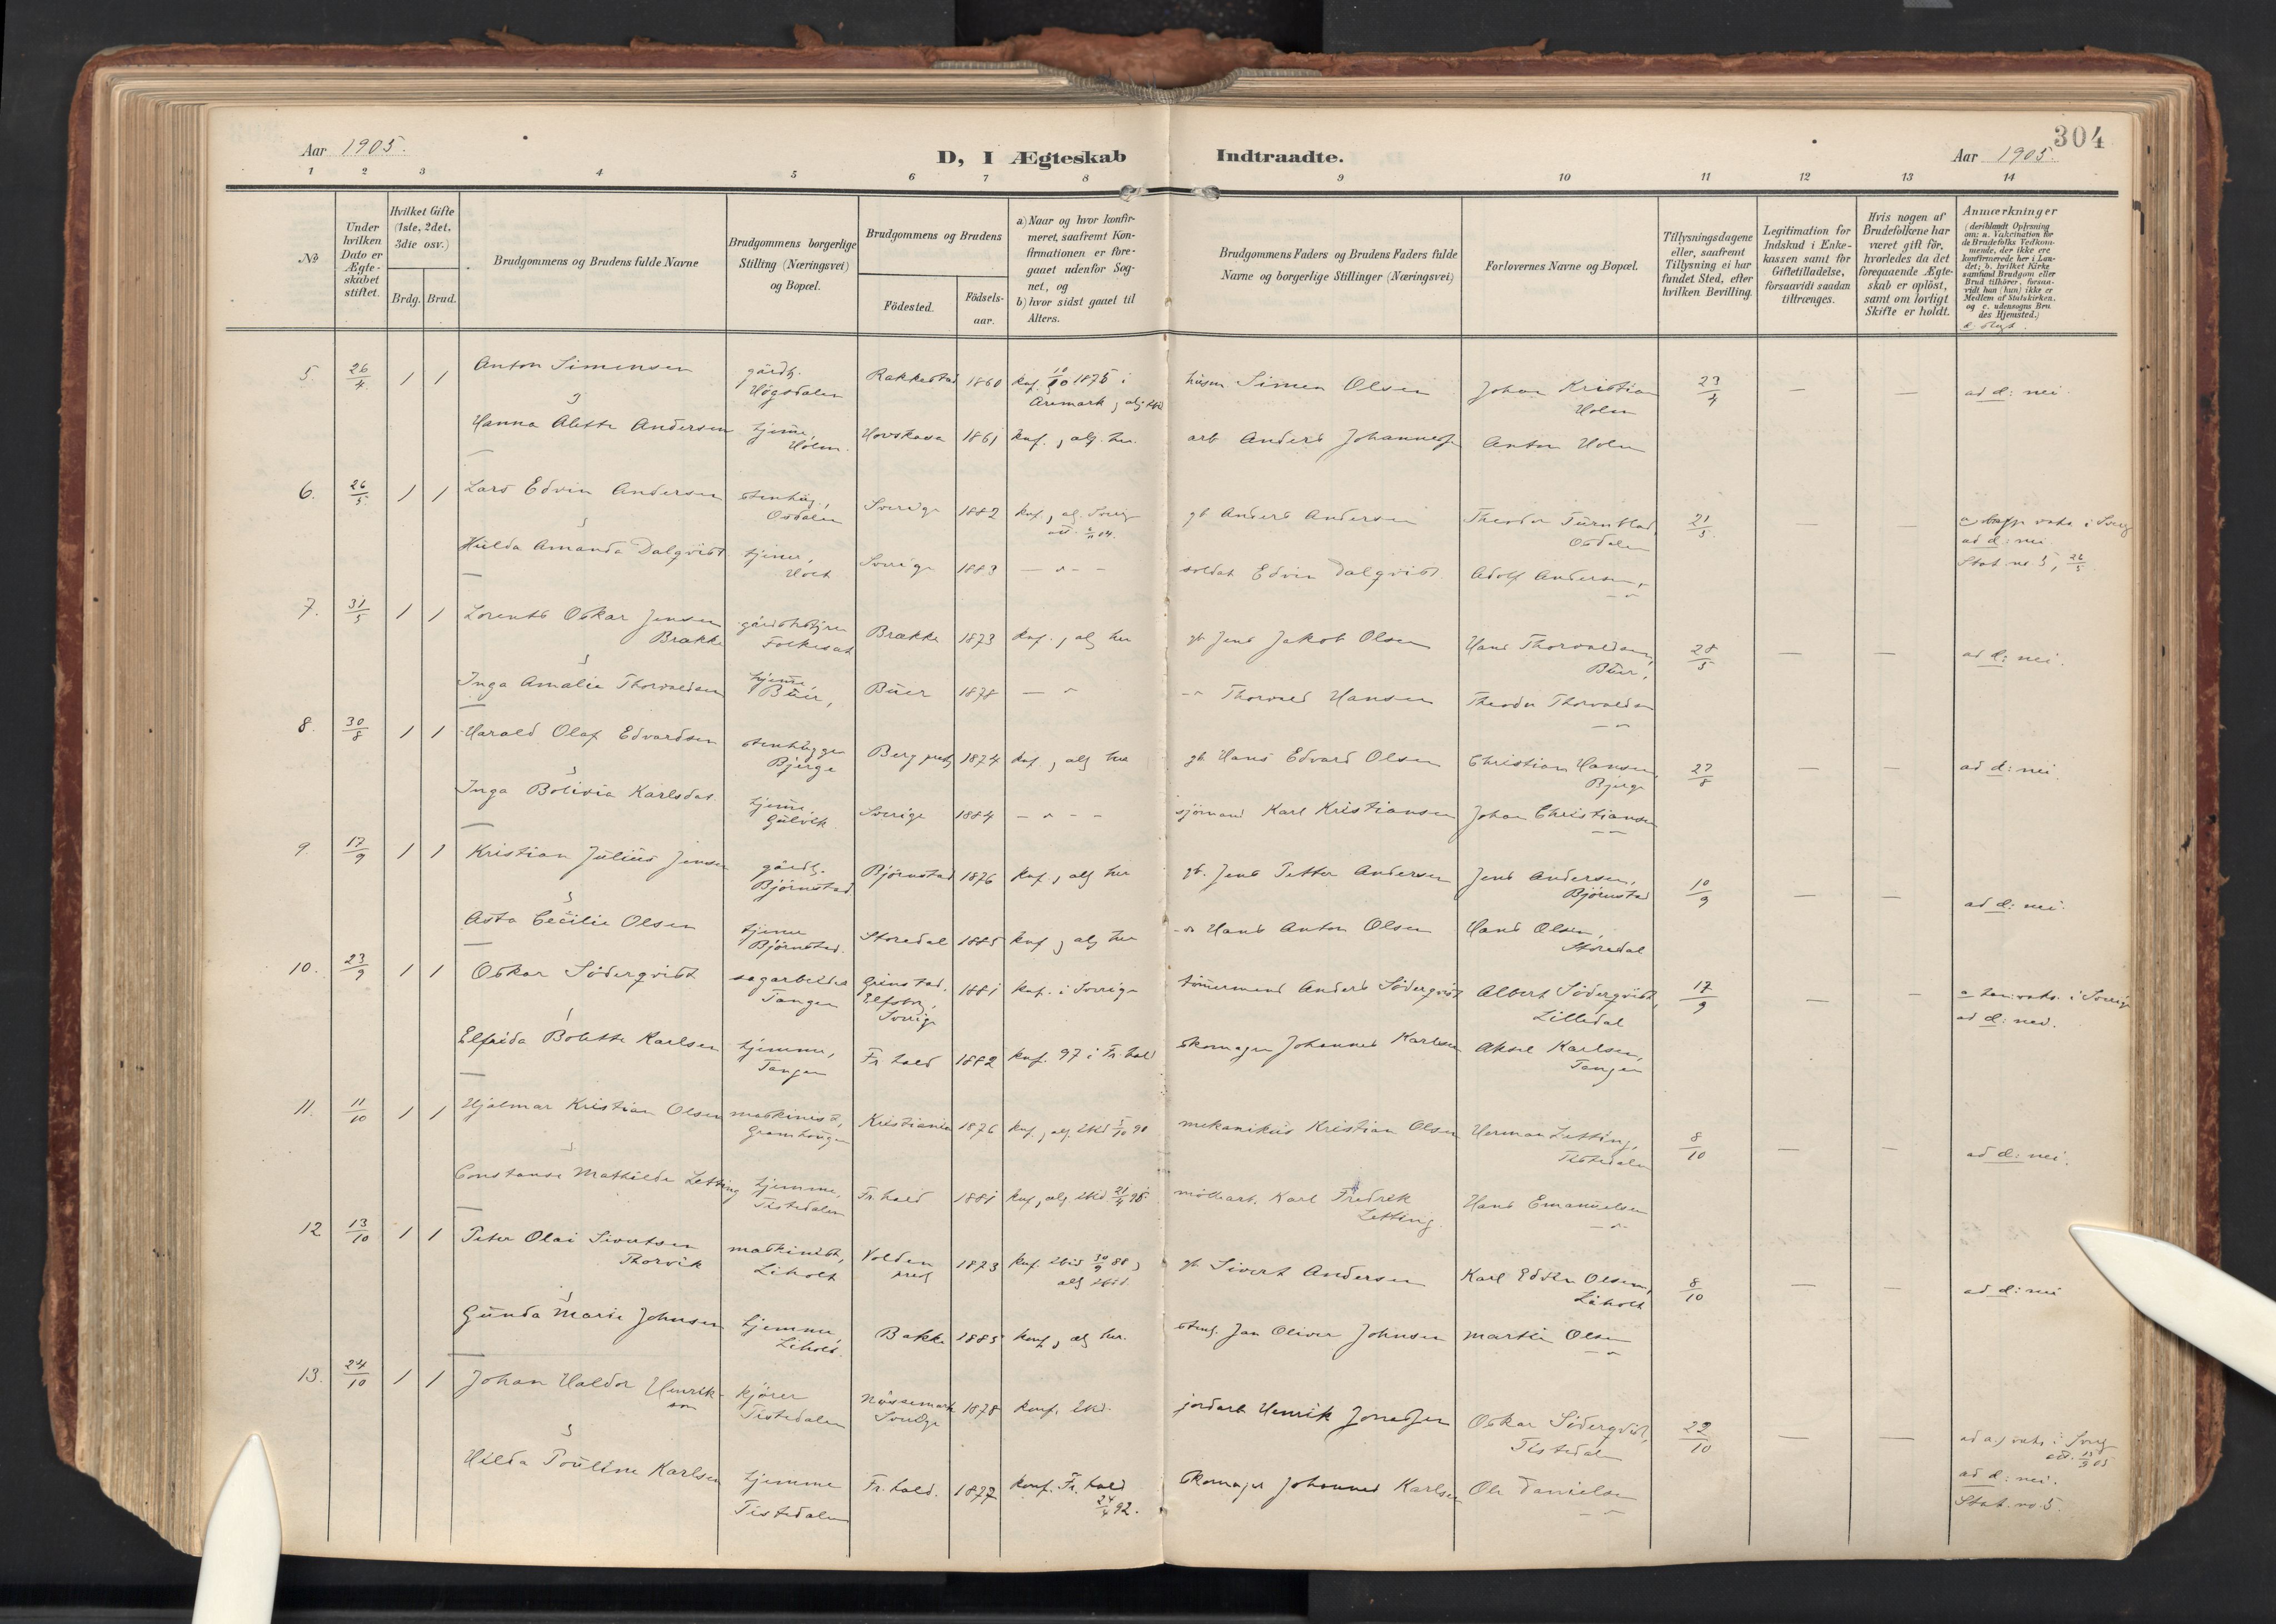 304
Aar 1905.
D, I Ægteskab Indtraadte.
Aar 1905.
1 2 3 4 5 6 7 8 9 10 11 12 13 14
No
Under hvilken Dato er Ægteskabet stiftet.
Hvilket Gifte (1ste, 2det, 3die osv.)
Brdg. Brud.
Brudgommens og Brudens fulde Navne
Brudgommens borgerlige Stilling (Næringsvei) og Bopæl.
Brudgommens og Brudens
Födested.
Födselsaar.
a) Naar og hvor konfirmeret, saafremt Konfirmationen er foregaaet udenfor Sognet, og
b) hvor sidst gaaet til Alters.
Brudgommens Faders og Brudens Faders fulde Navne og borgerlige Stillinger (Næringsvei)
Forlovernes Navne og Bopæl.
Tillysningsdagene eller, saafremt Tillysning ei har fundet Sted, efter hvilken Bevilling.
Legitimation for Indskud i Enkekassen samt for Giftetilladelse, forsaavidt saadan tiltrænges.
Hvis nogen af Brudefolkene har været gift för, hvorledes da det foregaaende Ægteskab er oplöst, samt om lovligt Skifte er holdt.
Anmærkninger
(deriblandt Oplysning om: a. Vakcination for de Brudefolks Vedkommende, der ikke ere konfirmerede her i Landet; b. hvilket Kirkesamfund Brudgom eller Brud tilhörer, forsaavidt han (hun) ikke er Medlem af Statskirken, og c. udensogns Brudes Hjemsted.)
5. 26/4 1 1 Anton Simensen gårdb. Høgsdalen Rakkestad 1860 knf. 10/10 1875 i Aremark, alg ibid husm Simen Olsen Johan Kristian Holm 23/4 — — ad d: nei.
Hanna Alette Andersen hjemme, Holm. 1861 knf., alg. her. arb Anders Johannes Anton Holm
6. 26/5 1 1 Lars Edvin Andersen stenhug., Osdalen Sverige 1882 knf, alg. Sverg gb Anders Andersen Theodor Turnblad, Osdalen 21/5 — — ad d: nei
Hulda Amanda Dalqvist tjener, Holt Sverige 1883 — " — soldat Edvin Dalqvist Adolf Andersen, — " Stat. no. 5, 26/5
7. 31/5 1 1 Lorents Oskar Jensen Brække Brække 1873 knf., alg her gb Jens Jakob Olsen Hans Thorvaldsen, Buer, 28/5 — — ad d: nei.
Inga Amalie Thorvaldsen hjemme, Buer, Buer 1878 — " — " Thorvald Hansen Theodor Thorvaldsen — "
8. 30/8 1 1 Harald Olaf Edvardsen stenhugger Bjerge Berg pretg 1874 knf, alg her gb Hans Edvard Olsen Christian Hansen, Bjerge 27/8 — — ad d: nei
Inga Bolivia Karlsdat. hjemme, Gulvik Sverige 1884 — " — sjömand Karl Kristiansen Johan Christiansen — "
9. 17/9 1 1 Kristian Julius Jensen gårdb. Björnstad Björnstad 1876 knf, alg her gb. Jens Petter Andersen Jens Andersen, Björnstad 10/9 — — ad d: nei.
Asta Cecilie Olsen tjener Björnstad. Storedal 1885 knf, alg her " Hans Anton Olsen Hans Olsen, Storedal
10. 23/9 1 1 Oskar Söderqvist sagarbeider Tangen Grinstad, Elfsborg, Sverige 1881 knf. i Sverige tömmermand Anders Söderqvist Albert Söderqvist, Lilledal 17/9 — — a han: vaks. i Sverige ad d: nei.
Elfrida Bolette Karlsen hjemme, Tangen Fr. hald 1882 knf. 97 i Fr. hald skomager Johannes Karlsen Aksel Karlsen, Tangen
11. 11/10 1 1 Hjalmar Kristian Olsen maskinist, Kristiania 1876 knf, alg. ibid 5/10 90 mekanikus Kristian Olsen Herman Letting, Tistedalen 8/10 — — ad d: nei.
Constanse Mathilde Letting hjemme, Tistedalen Fr. hald 1881 knf, alg ibid 21/4 95 möllearb. Karl Fredrik Letting. Hans Emanuelsen — "
12 13/10 1 1 Peter Olai Sivertsen Thorvik maskinist, Liholt Volden pretg 1873 knf ibid 30/9 88, alg ibid. gb Sivert Andersen Karl Edvin Olsen, Liholt 8/10 — — ad d: nei
Gunda Marie Johnsen hjemme, Liholt. Bakke 1885 konf, alg her. stenh. Jan Oliver Johnsen Martin Olsen — "
13. 24/10 1 1 Johan Haldor Henrikson kjörer Tistedalen Nössemark Sverige 1878 konf. ibid. jordarb Henrik Jonassen Oskar Söderqvist, Tistedal 22/10 — — ad a, vaks i Sverg att. 13/9 05
Hilda Pouline Karlsen hjemme Tistedalen Fr. hald. 1877 konf. Fr. hald 24/4 92. Skomager Johannes Karlsen Ole Danielsen — " ad d: nei. Stat. no. 5.